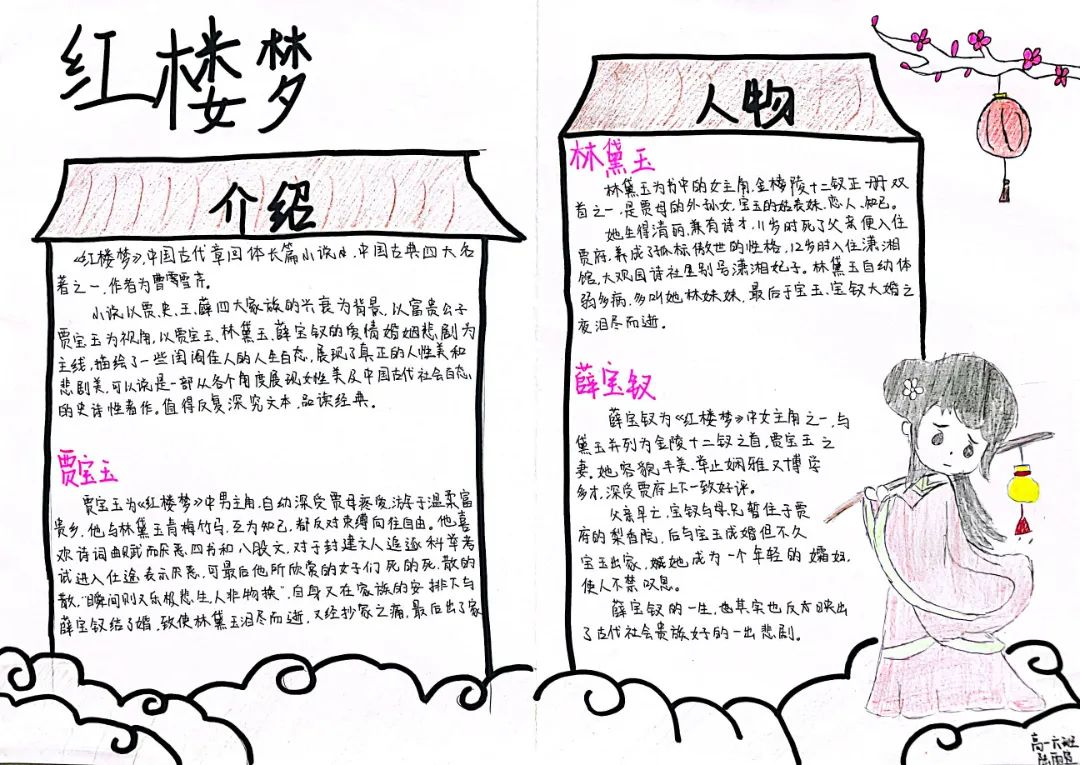 红楼梦
介绍
《红楼梦》,中国古代章回体长篇小说,中国古典四大名
著之一,作者为曹雪芹。
小说以贾、史、王、薛四大家族的兴衰为背景,以富贵公子
贾宝玉为视角,以贾宝玉、林黛玉、薛宝钗的爱情婚姻悲剧为
主线,描绘了一些闺阁佳人的人生百态,展现了真正的人性美和
悲剧美,可以说是一部从各个角度展现女性美及中国古代社会百态
的史诗性著作。值得反复深究文本,品读经典。
贾宝玉
贾宝玉为《红楼梦》中男主角,自幼深受贾母疼爱,沽于温柔富
贵乡,他与林黛玉青梅竹马,互为知己,都反对束缚向往自由。他喜
欢诗词曲赋而厌恶四书和八股文,对于封建文人追逐科举考
试进入仕途表示厌恶,可最后他所欣赏的女子们死的死,散的
散,“瞬间则又乐极悲生,人非物换”,自身又在家族的安排下与
薛宝钗结了婚,致使林黛玉泪尽而逝,又经抄家之痛,最后出了家
人物
林黛玉
林黛玉为书中的女主角,金梭陵十二钗正册双
首之一,是贾母的外孙女,宝玉的姑表妹,恋人、知己。
她生得清丽,兼有诗才,11岁时死了父亲便入住
贾府,养成了孤标傲世的性格,12岁时入住潇湘
馆,大观园诗社里别号潇湘妃子。林黛玉自幼体
弱多病,多叫她林妹妹,最后于宝玉、宝钗大婚之
夜泪尽而逝。
薛宝钗
薛宝钗为《红楼梦》中女主角之一,与
黛玉并列为金陵十二钗之首,贾宝玉之
妻。她容貌丰美,举止娴雅又博学
多才,深受贾府上下一致好评。
父亲早亡,宝钗与母兄暂住于贾
府的梨香院,后与宝玉成婚但不久
宝玉出家,她成为一个年轻的孀妇,
使人不禁叹息。
薛宝钗的一生,也其实也反映出
了古代社会贵族女子的一出悲剧。
高一六班